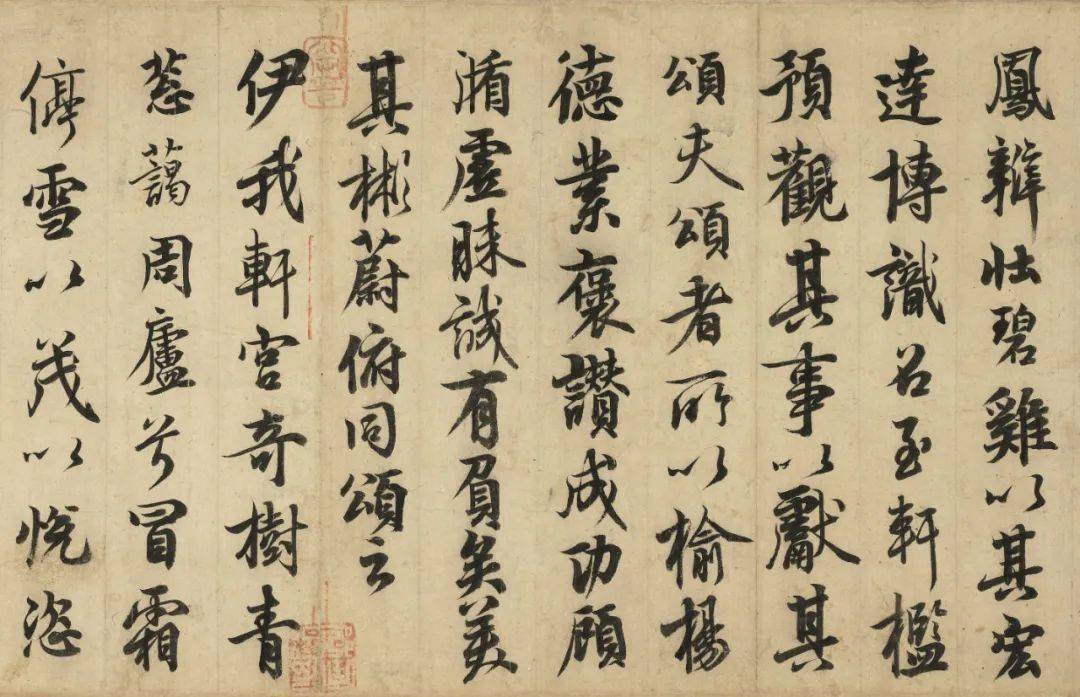 鳳辯壯碧雞以其宏
達博識召至軒檻
預觀其事以獻其
頌夫頌者所以榆楊
德業褒讚成功顧
循虛昧誠有負矣美
其彬蔚俯同頌云
伊我軒宮奇樹青
蔥藹周廬兮冒霜
停雪以茂以悅恣